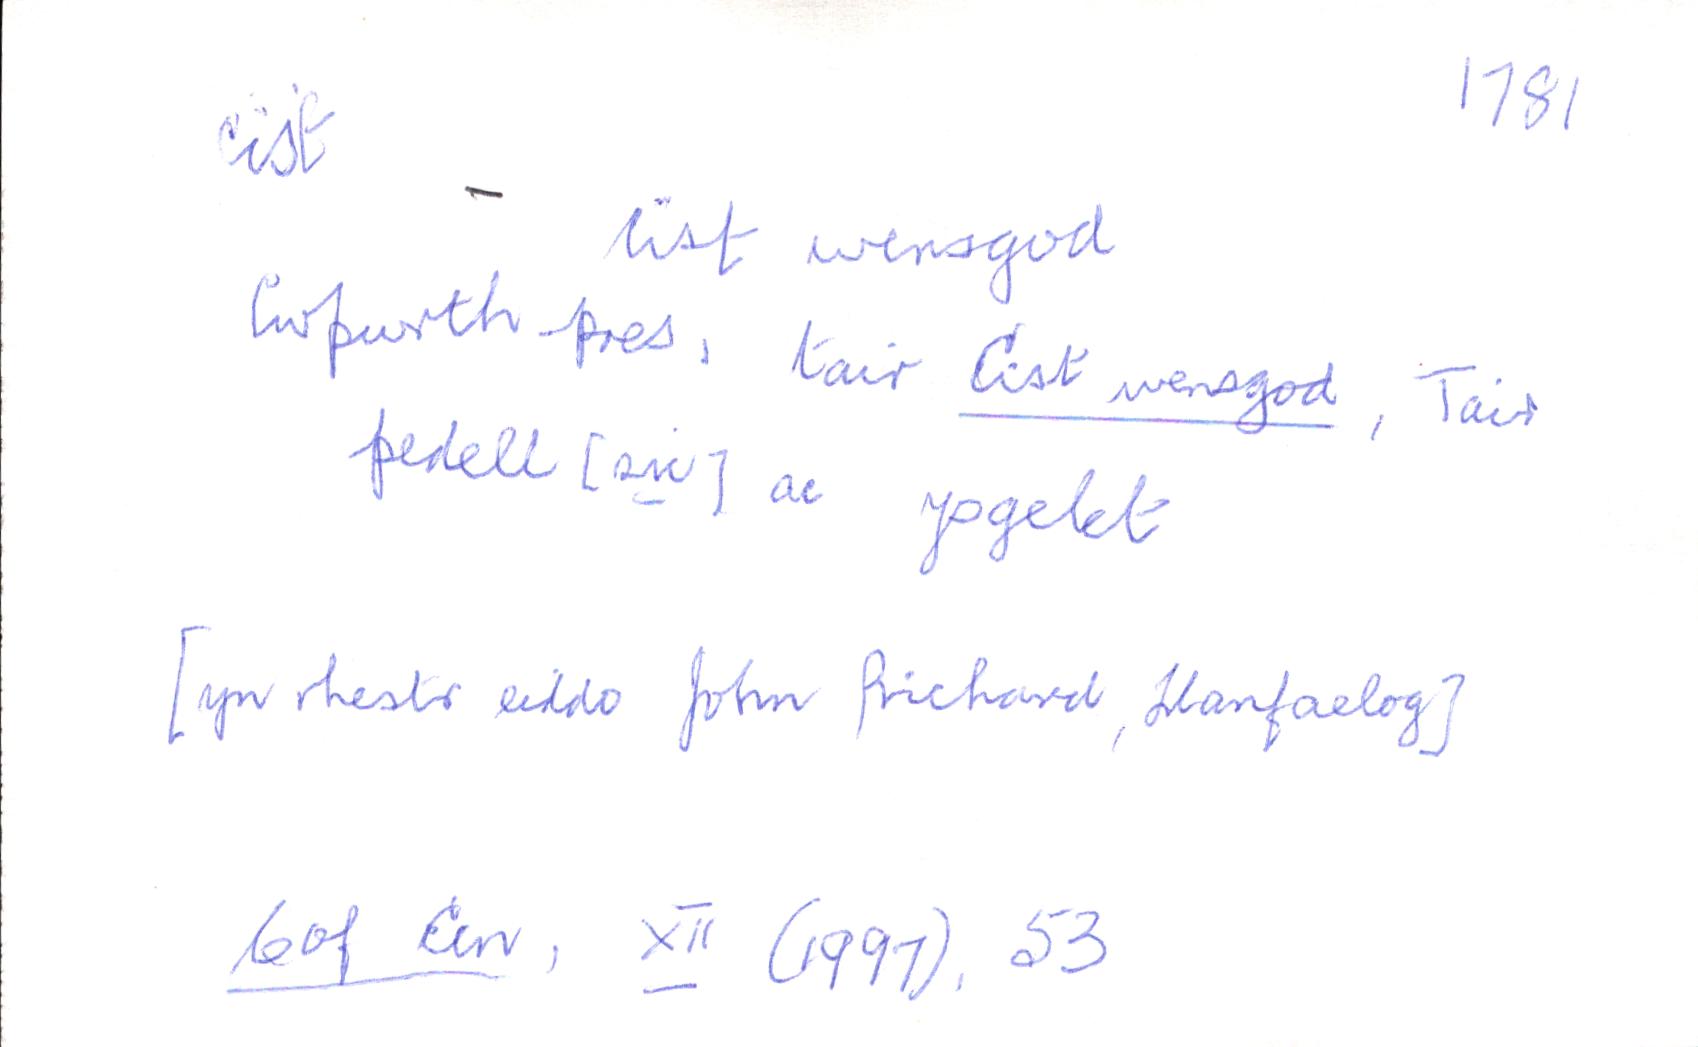 1781
cist
- cist wensgod
Cwpwrth pres, tair Cist wensgod, Tair
pedell [sic] ac ysgelet
[yn rhestr eiddo John Prichard, Llanfaelog]
Cof Cen, XII (1997), 53